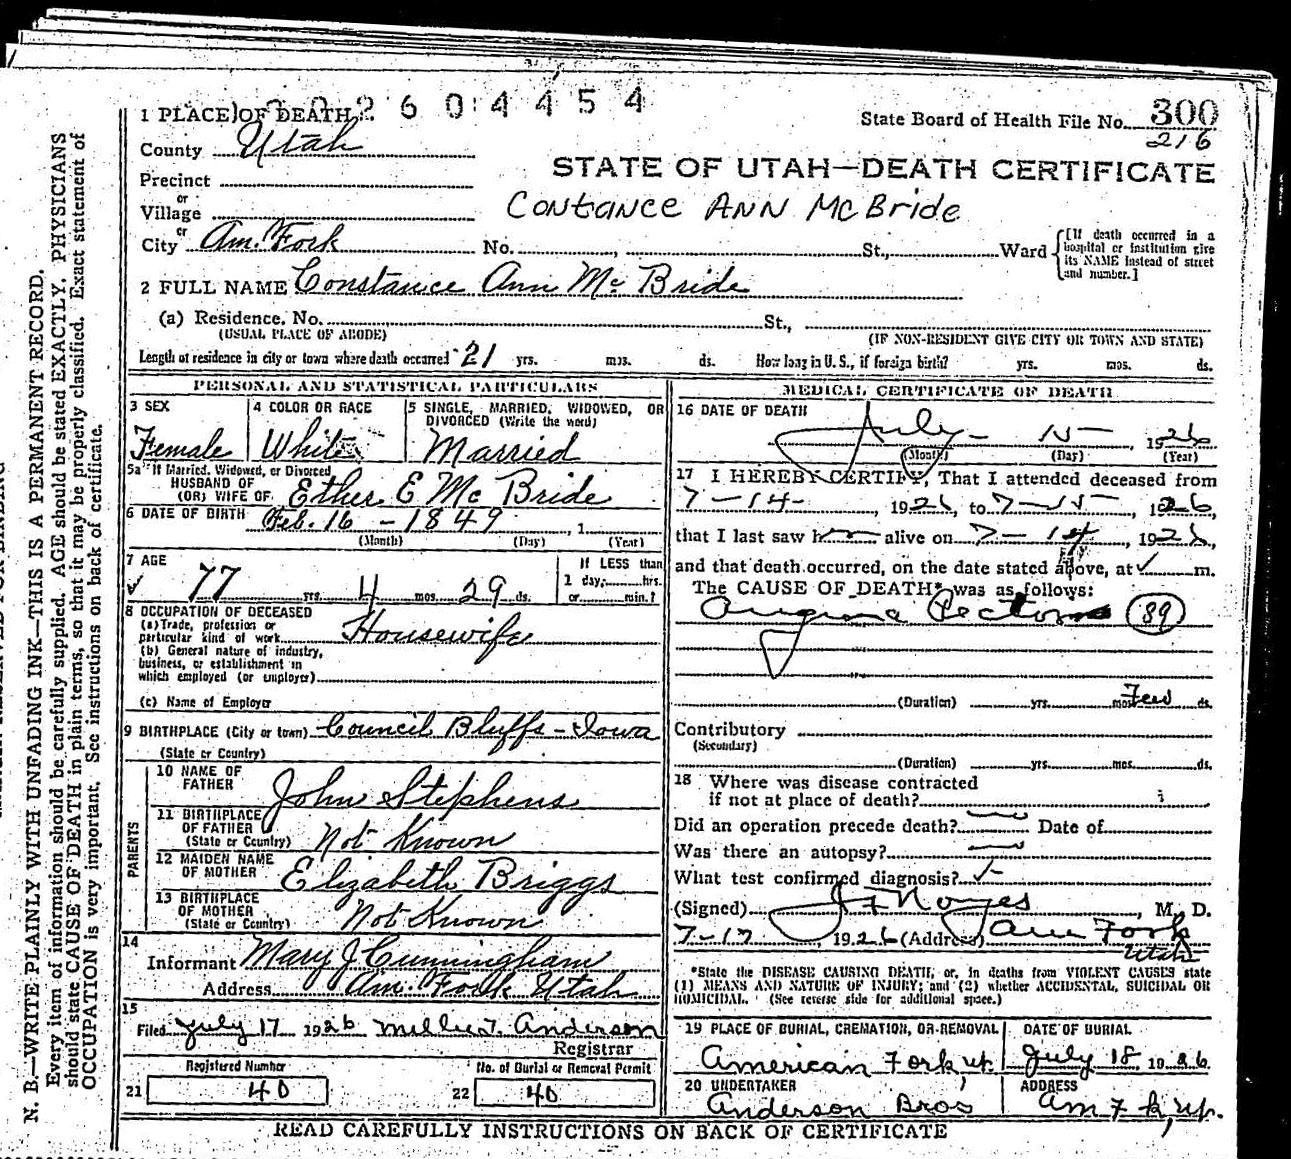 2 6 0 4 4 5 4
1 PLACE OF DEATH
State Board of Health File No. 300
216
County Utah
STATE OF UTAH—DEATH CERTIFICATE
Precinct
or
Village
Contance Ann McBride
or
City Am. Fork No. , St., Ward
[If death occurred in a hospital or institution give its NAME instead of street and number.]
2 FULL NAME Constance Ann Mc Bride
(a) Residence. No. St.,
(USUAL PLACE OF ABODE) (IF NON-RESIDENT GIVE CITY OR TOWN AND STATE)
Length of residence in city or town where death occurred 21 yrs. mos. ds. How long in U. S., if foreign birth? yrs. mos. ds.
PERSONAL AND STATISTICAL PARTICULARS
3 SEX
Female
4 COLOR OR RACE
White
5 SINGLE, MARRIED, WIDOWED, OR
DIVORCED (Write the word)
Married
5a If Married, Widowed, or Divorced
HUSBAND OF
(OR) WIFE OF Ether E Mc Bride
6 DATE OF BIRTH Feb. 16 - 1849 , 1
(Month) (Day) (Year)
7 AGE
77 yrs. 4 mos. 29 ds.
If LESS than
1 day, hrs.
or min.?
8 OCCUPATION OF DECEASED
(a) Trade, profession or
particular kind of work Housewife
(b) General nature of industry,
business, or establishment in
which employed (or employer)
(c) Name of Employer
9 BIRTHPLACE (City or town) Council Bluffs - Iowa
(State or Country)
PARENTS
10 NAME OF
FATHER John Stephens
11 BIRTHPLACE
OF FATHER
(State or Country) Not Known
12 MAIDEN NAME
OF MOTHER Elizabeth Briggs
13 BIRTHPLACE
OF MOTHER
(State or Country) Not Known
14
Informant Mary J Cunningham
Address Am. Fork Utah
15
Filed July 17 1926 Millie T. Anderson
Registrar
Registered Number
21 40
No. of Burial or Removal Permit
22 40
MEDICAL CERTIFICATE OF DEATH
16 DATE OF DEATH
July - 15 - , 1926
(Month) (Day) (Year)
17 I HEREBY CERTIFY, That I attended deceased from
7-14- , 1926, to 7-15- , 1926,
that I last saw her alive on 7-14 , 1926,
and that death occurred, on the date stated above, at m.
The CAUSE OF DEATH* was as follows:
Angina Pectoris 89
(Duration) yrs. mos. Few ds.
Contributory
(Secondary)
(Duration) yrs. mos. ds.
18 Where was disease contracted
if not at place of death?
Did an operation precede death? Date of
Was there an autopsy?
What test confirmed diagnosis?
(Signed) J F Noyes , M. D.
7-17 , 1926 (Address) Am Fork
Utah
*State the DISEASE CAUSING DEATH, or, in deaths from VIOLENT CAUSES state
(1) MEANS AND NATURE OF INJURY; and (2) whether ACCIDENTAL, SUICIDAL OR
HOMICIDAL. (See reverse side for additional space.)
19 PLACE OF BURIAL, CREMATION, OR REMOVAL
American Fork ut.
DATE OF BURIAL
July 18, 1926
20 UNDERTAKER
Anderson Bros
ADDRESS
Am Fk, ut.
READ CAREFULLY INSTRUCTIONS ON BACK OF CERTIFICATE
N. B.—WRITE PLAINLY WITH UNFADING INK—THIS IS A PERMANENT RECORD.
Every item of information should be carefully supplied. AGE should be stated EXACTLY. PHYSICIANS
should state CAUSE OF DEATH in plain terms, so that it may be properly classified. Exact statement of
OCCUPATION is very important. See instructions on back of certificate.